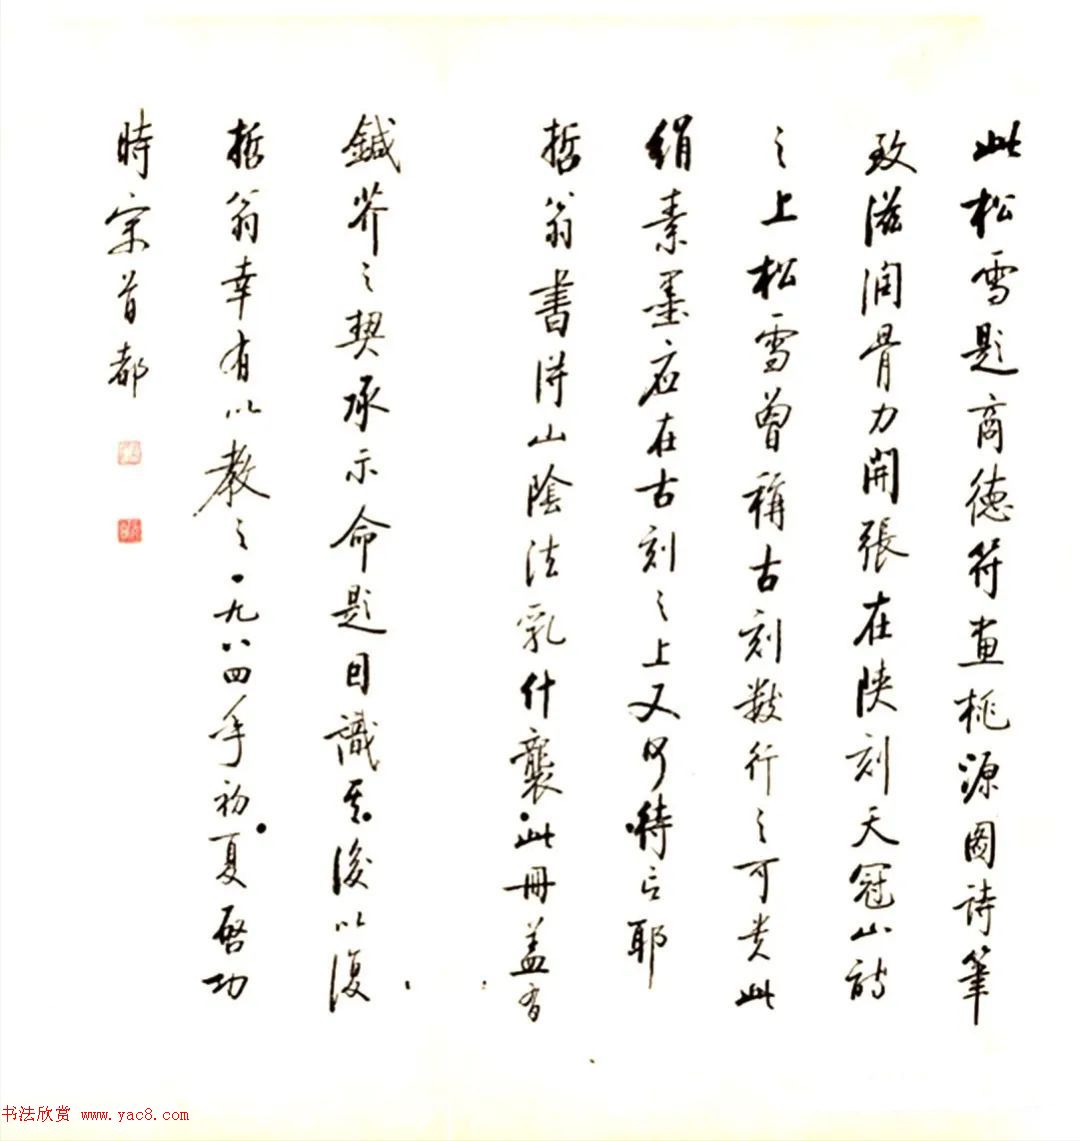 此松雪題商德符畫桃源圖詩筆
致滋潤骨力開張在陝刻天冠山詩
之上松雪曾稱古刻數行之可貴此
絹素墨蹟在古刻之上又何待言耶
哲翁書得山陰法乳什襲此冊蓋有
鍼芥之契承示命題因識其後以復
哲翁幸有以教之一九八四年初夏啓功
時寓首都
书法欣赏 www.yac8.com